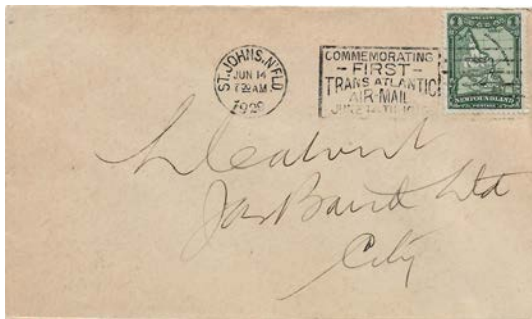 ST. JOHN'S, N'FLD
JUN 14
7 29 AM
1929
COMMEMORATING
- FIRST -
TRANS ATLANTIC
AIR-MAIL
JUNE 14TH
1 1
NEWFOUNDLAND
Jas Baird Ltd
City